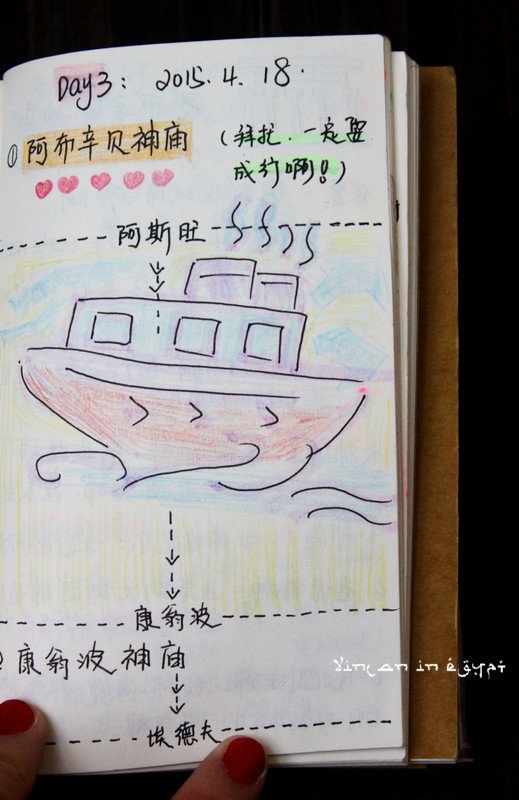 Day3: 2015.4.18.
① 阿布辛贝神庙
(拜托.一定要
成行啊!)
阿斯旺
康翁波
② 康翁波神庙
埃德夫
Vincan in egypt